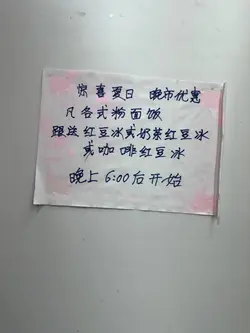 惊喜夏日 晚市优惠
凡各式粉面饭
跟送红豆冰或奶茶红豆冰
或咖啡红豆冰
晚上6:00后开始